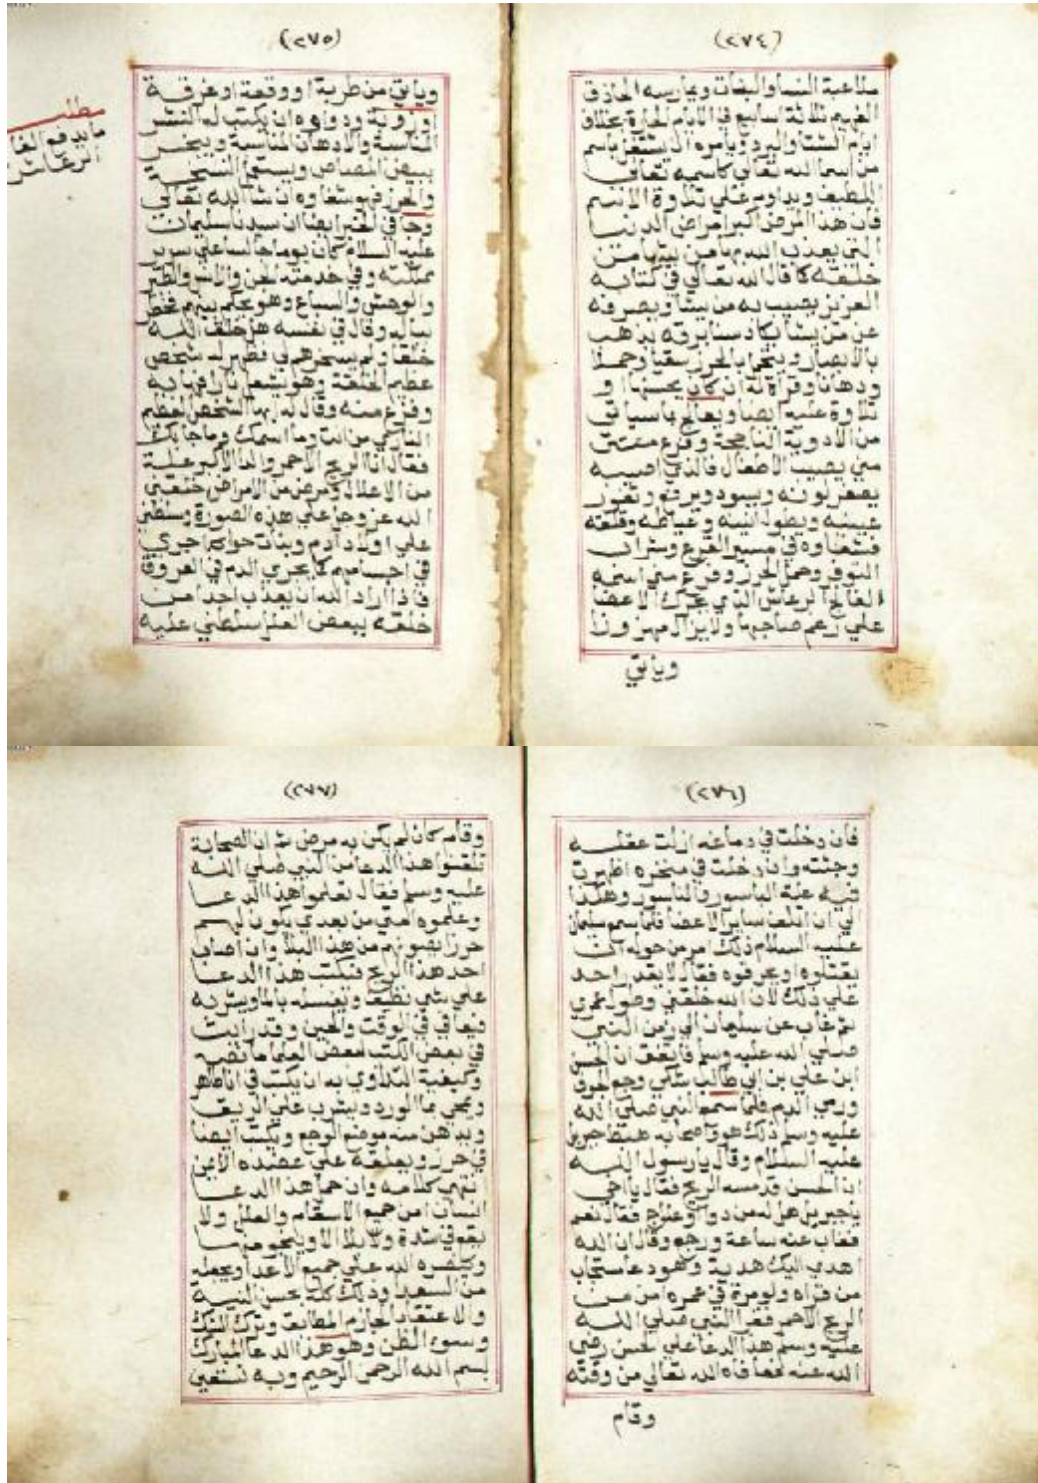 (٢٧٤)
ملاعبة النسا والبغات ويمارسه الحاذق
الفهيم ثلاثة اسابيع في الايام الحارة بخلاف
ايام الشتا والبرد ويامره ان يشتغل باسم
من اسما الله تعالي كاسمه تعالي
اللطيف ويداوم علي تلاوة الاسم
فان هذا المرض اكبر امراض الدنيا
التي يعذب الله بها من يشا من
خلقه كما قال الله تعالي في كتابه
العزيز يصيب به من يشا ويصرفه
عن من يشا يكاد سنا برقه يذهب
بالابصار ويتحرا بالحرز سقيا وحملا
ودهانا وقراة له ان كان يحسنها و
تلاوة عليه ايضا ويعالج بما سياتي
من الادوية الناجحة وفرع
مني يصيب الاطفال فالذي اصيبه
يصفر لونه ويسود ويرق وتغور
عيينه ويطول انينه وعياطه وقلقه
فشفاوه في مسير القرع وشراب
النوفر وحمل الحرز وفرع مني اسمه
الفالج الرعاش الذي يحرك الاعضا
علي رغم صاحبها ولا يزال مهزوزا
وياتي
(٢٧٥)
وياتي من طربة او وقعة او غرقة
او زوبة ودواوه ان يكتب له النشر
المناسبة والادهان المناسبة ويبخر
ببيض المصاص ويستعمل السبحة
والحرز فهو شفاوه ان شا الله تعالي
وجا في الخبر ايضا ان سيدنا سليمان
عليه السلام كان يوما جالسا علي سرير
مملكته وفي خدمته الجن والانس والطير
والوحش والسباع وهو يحكم بينهم فخطر
بباله وقال في نفسه هل خلق الله
خلقا ولم يسخرهم لي فظهر له شخص
عظيم الخلقة وهو يشعل نارا فهابه
وفزع منه وقال له ايها الشخص العظيم
الناري من انت وما اسمك وما جا بك
فقال انا الريح الاحمر والدا الاكبر علة
من الاعلال ومرض من الامراض خلقني
الله عز وجل علي هذه الصورة وسلطني
علي اولاد ادم وبنات حوا اجري
في اجسامهم كما يجري الدم في العروق
فاذا اراد الله ان يعذب احدا من
خلقه ببعض العلل سلطني عليه
مطلب
ما يدفع الفا
الرعاش
(٢٧٦)
فان دخلت في دماغه ازلت عقله
وجثته وان دخلت في منخره اظهرت
فيه علة الباسور والناسور وهكذا
الي ان اتلف ساير الاعضا فلما سمع سليمان
عليه السلام ذلك امر من حوله ان
يقتلوه او يحرقوه فقال لا يقدر احد
علي ذلك لان الله خلقني وطول عمري
ثم غاب عن سليمان الي زمن النبي
صلي الله عليه وسلم فاتفق ان الحسن
ابن علي بن ابي طالب شكي وجع الجوف
ورمي الدم فلما سمع النبي صلي الله
عليه وسلم ذلك هو واصحابه هبط جبريل
عليه السلام وقال يا رسول الله
ان الحسن قد مسه الريح فقال يا اخي
يا جبريل هل له من دوا وعلاج فقال نعم
فغاب عنه ساعة ورجع وقال ان الله
اهدي اليك هدية وهو دعا مستجاب
من قراه ولو مرة في عمره امن من
الريح الاحمر فقرا النبي صلي الله
عليه وسلم هذا الدعا علي الحسن رضي
الله عنه فعافاه الله تعالي من وقته
وقام
(٢٧٧)
وقام كان لم يكن به مرض ثم ان الصحابة
تلقنوا هذا الدعا من النبي صلي الله
عليه وسلم فقال تعلموا هذا الدعا
وعلموه امتي من بعدي يكون لهم
حرزا يصونهم من هذا البلا وان اصاب
احد هذا الريح فيكتب هذا الدعا
علي شي نظيف ويغسله بالما ويشربه
فيعافي في الوقت والحين وقد رايت
في بعض الكتب لبعض العلما ما نصه
وكيفية التداوي به ان يكتب في انا طاهر
ويمحي بما الورد ويشرب علي الريق
ويدهن منه موضع الوجع ويكتب ايضا
في حرز ويعلقه علي عضده الايمن
انتهي كلامه وان حمل هذا الدعا
انسان امن جميع الاسقام والعلل ولا
يقع في شدة ولا بلا الا وينجو منها
وينصره الله علي جميع الاعدا ويجعله
من السعدا وذلك كله بحسن النية
والاعتقاد الجازم المطابق وترك الشك
وسوء الظن وهو هذا الدعا المبارك
بسم الله الرحمن الرحيم وبه نستعين